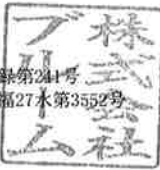 株式会社
ブルーム
録第241号
福27水第3552号